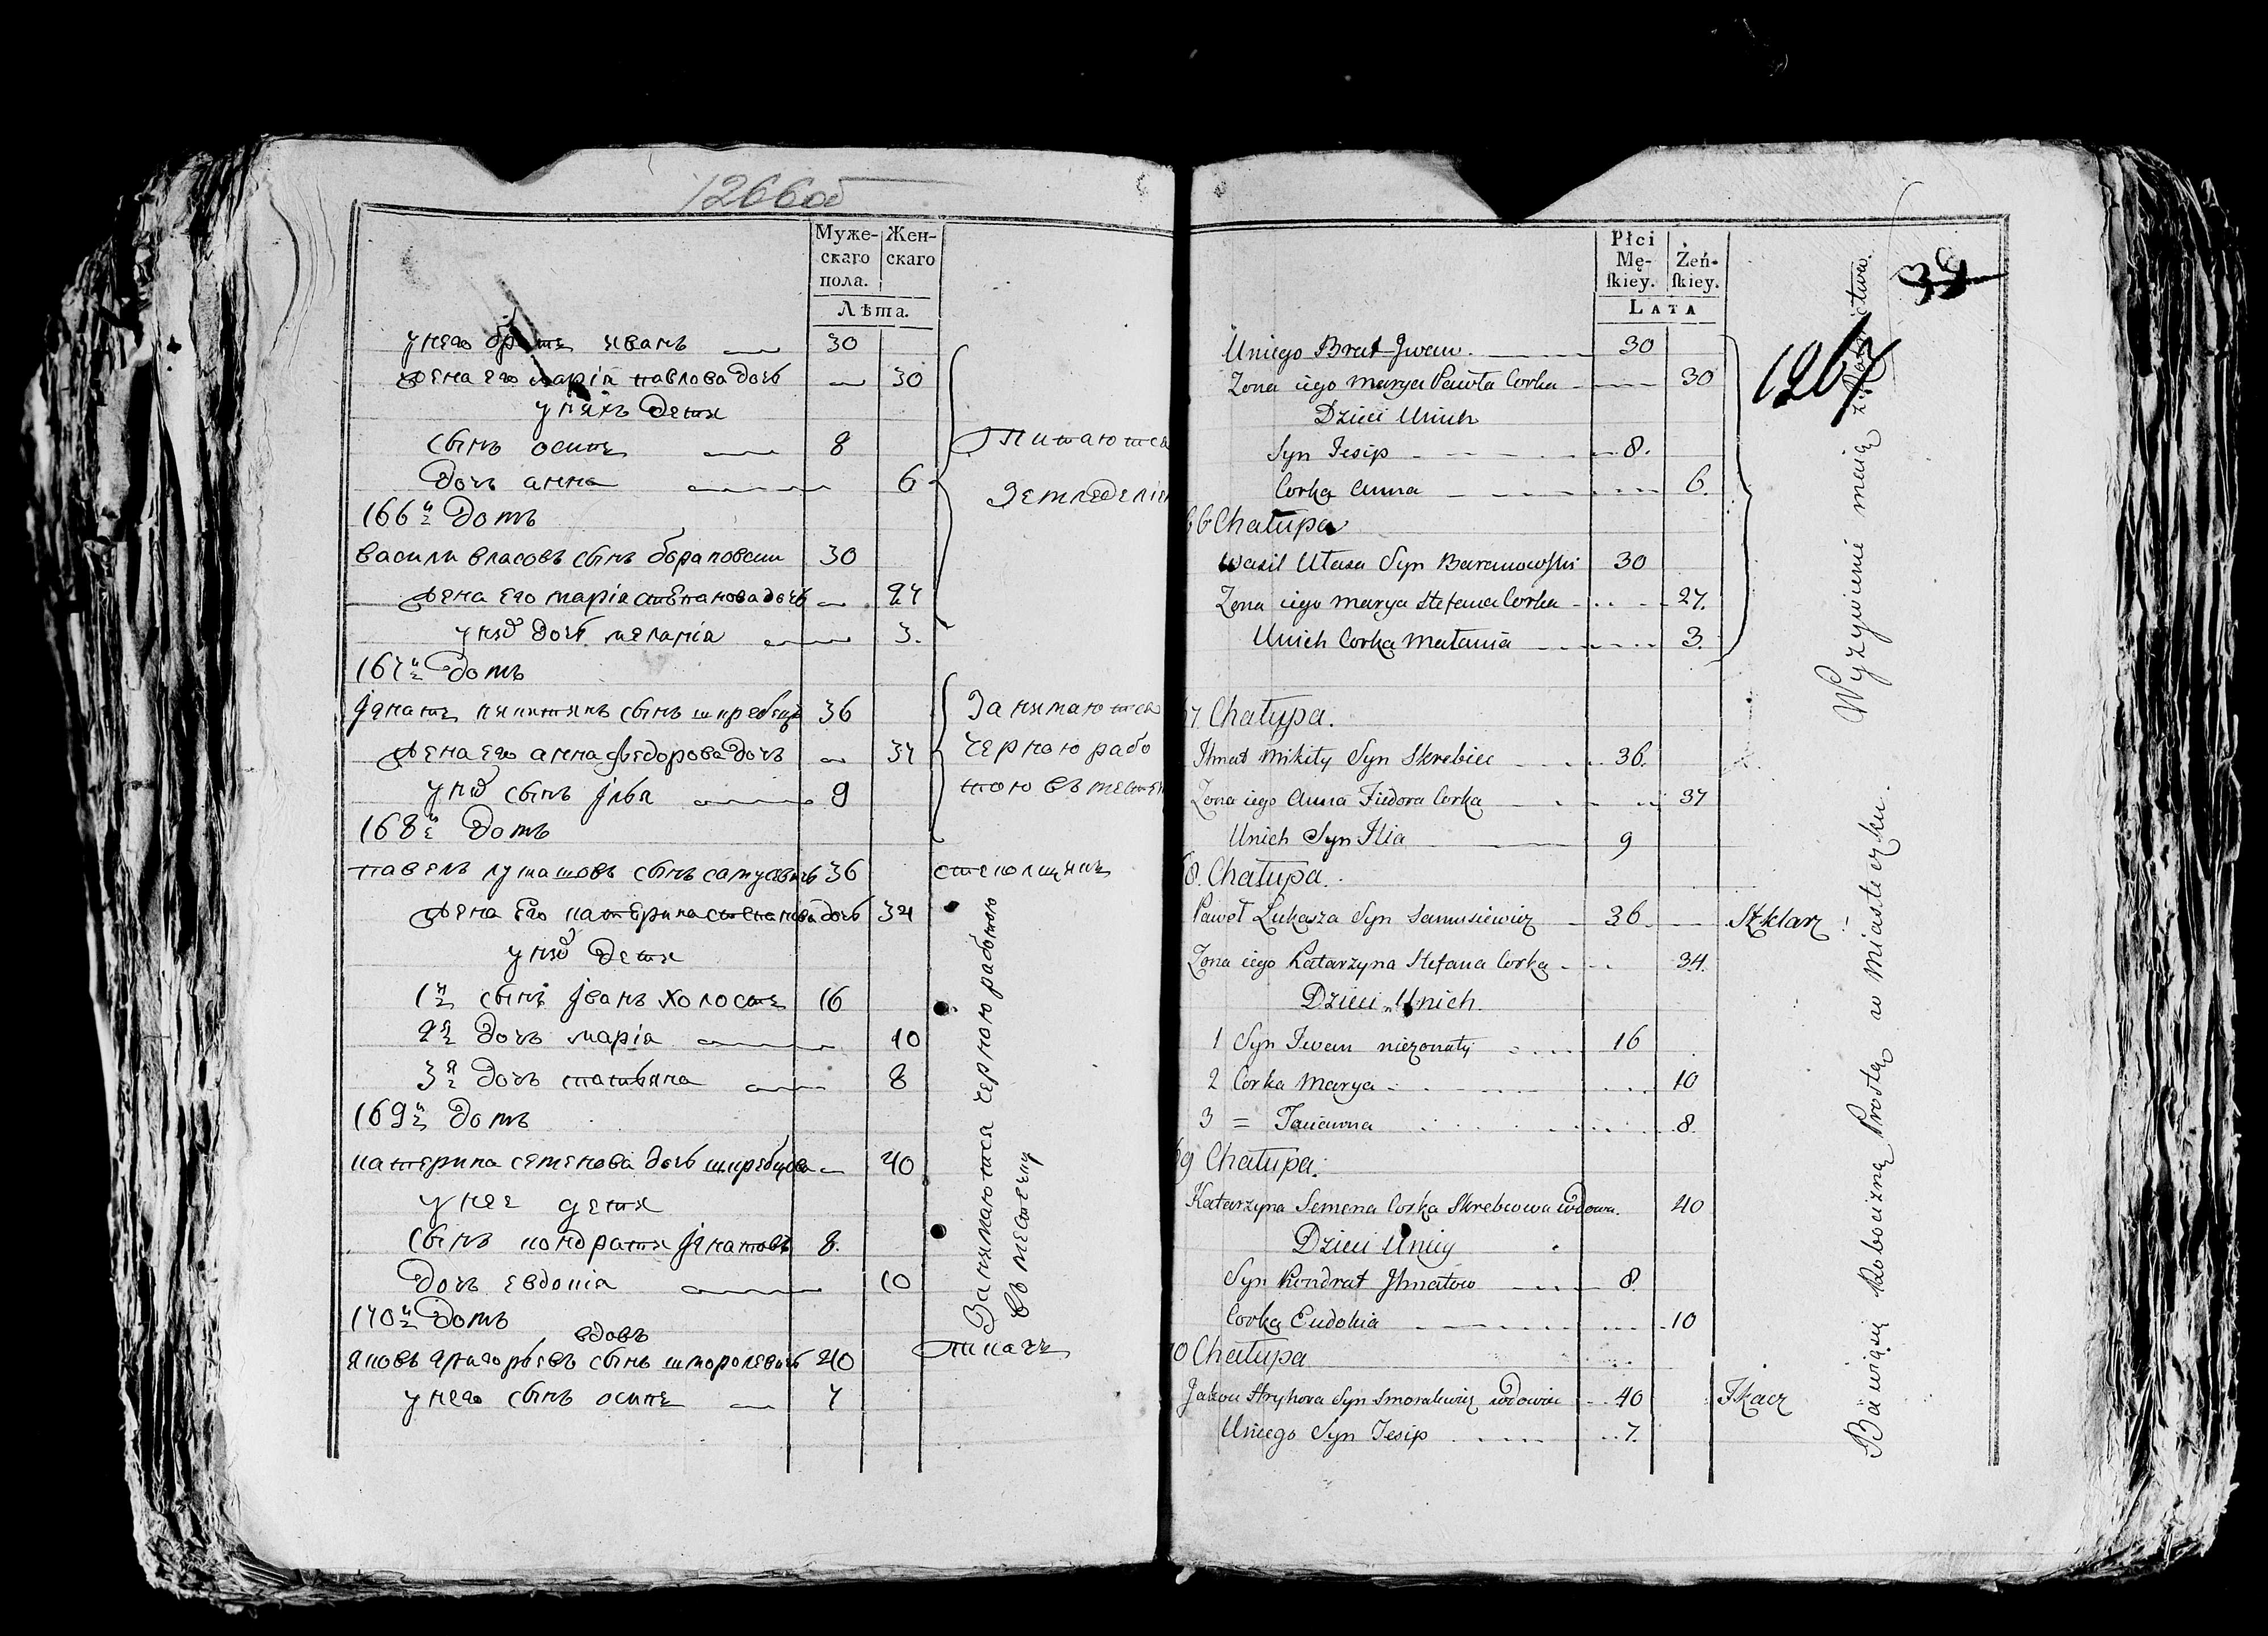 1266об
Муже-
скаго
пола.
Жен-
скаго
Лѣта.
у него братъ иванъ 30
жена его марія павлова дочь 30
у нихъ дети
сынъ осипъ 8
дочь анна 6
Питаются
Земледелие
166й домъ
васили власовъ сынъ барановски 30
жена его марія степанова дочь 27
у них дочь меланіа 3.
167й домъ
Игнатъ никитинъ сынъ шкребецъ 36
жена его анна федорова дочь 37
у них сынъ илья 9
Занимаются
черною рабо
тою въ местеч
168й домъ
павелъ лукашовъ сынъ самусевичъ 36
стеколщикъ
жена его катерина степанова дочь 34
у них дети
1й сынъ иванъ холостъ 16
2я дочь маріа 10
3я дочь татьяна 8
169й домъ
катерина семенова дочь шкребцова 40
у нее дети
сынъ кондрати игнатовъ 8.
дочь евдокіа 10
Занимаются черною работою
въ местечку
170й домъ
вдовъ
яковъ григорьевъ сынъ шморолевичъ 40
ткачъ
у него сынъ осипъ 7
Płci
Mę-
ſkiey.
Żeń-
ſkiey.
LATA
39
1267
Uniego Brat Jwan 30
Zona iego Marya Pawła Corka 30
Dzieci Unich
Syn Jesip 8.
Corka Anna 6.
66 Chałupa
Wasil Ułasa Syn Baranowſki 30
Zona iego Marya Stefana Corka 27.
Unich Corka Małania 3.
Wyzywienie maią z Rolnictwa.
67 Chałupa.
Jhnat Mikity Syn Skrebiec 36.
Zona iego Anna Fiedora Corka 37
Unich Syn Ilia 9
68. Chałupa.
Paweł Łukasza Syn Samusiewicz 36 Szklarz
Zona iego Katarzyna Stefana Corka 34.
Dzieci Unich.
1 Syn Iwan niezonaty 16
2 Corka Marya 10
3 = Tacianna 8.
69 Chałupa.
Katarzyna Semena Corka Skrebcowa wdowa. 40
Dzieci Uniey
Syn Kondrat Jhnatow 8.
Corka Eudokia 10
Bawią się Robocizną Prostą w Miasteczku.
70 Chałupa
Jakow Hryhora Syn Smoralewicz wdowiec 40 Tkacz
Uniego Syn Jesip 7.